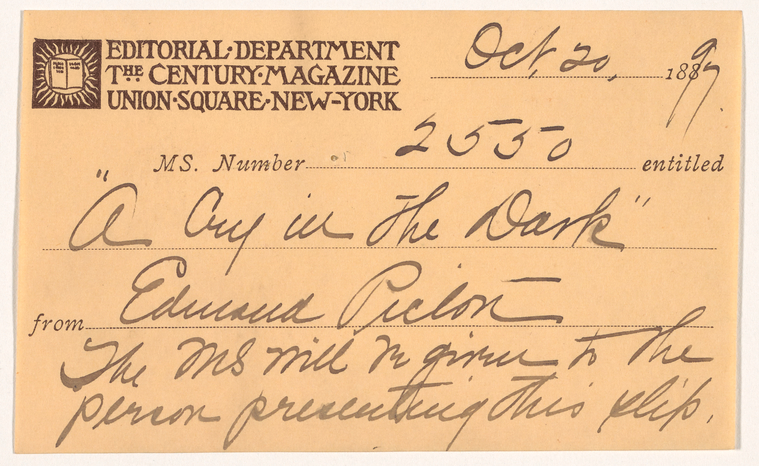 EDITORIAL·DEPARTMENT
THE CENTURY·MAGAZINE
UNION·SQUARE·NEW-YORK
Oct, 20, 1897.
MS. Number 2550 entitled
"A Cry in the Dark"
from Edmund Picton
The MS will be given to the
person presenting this slip.